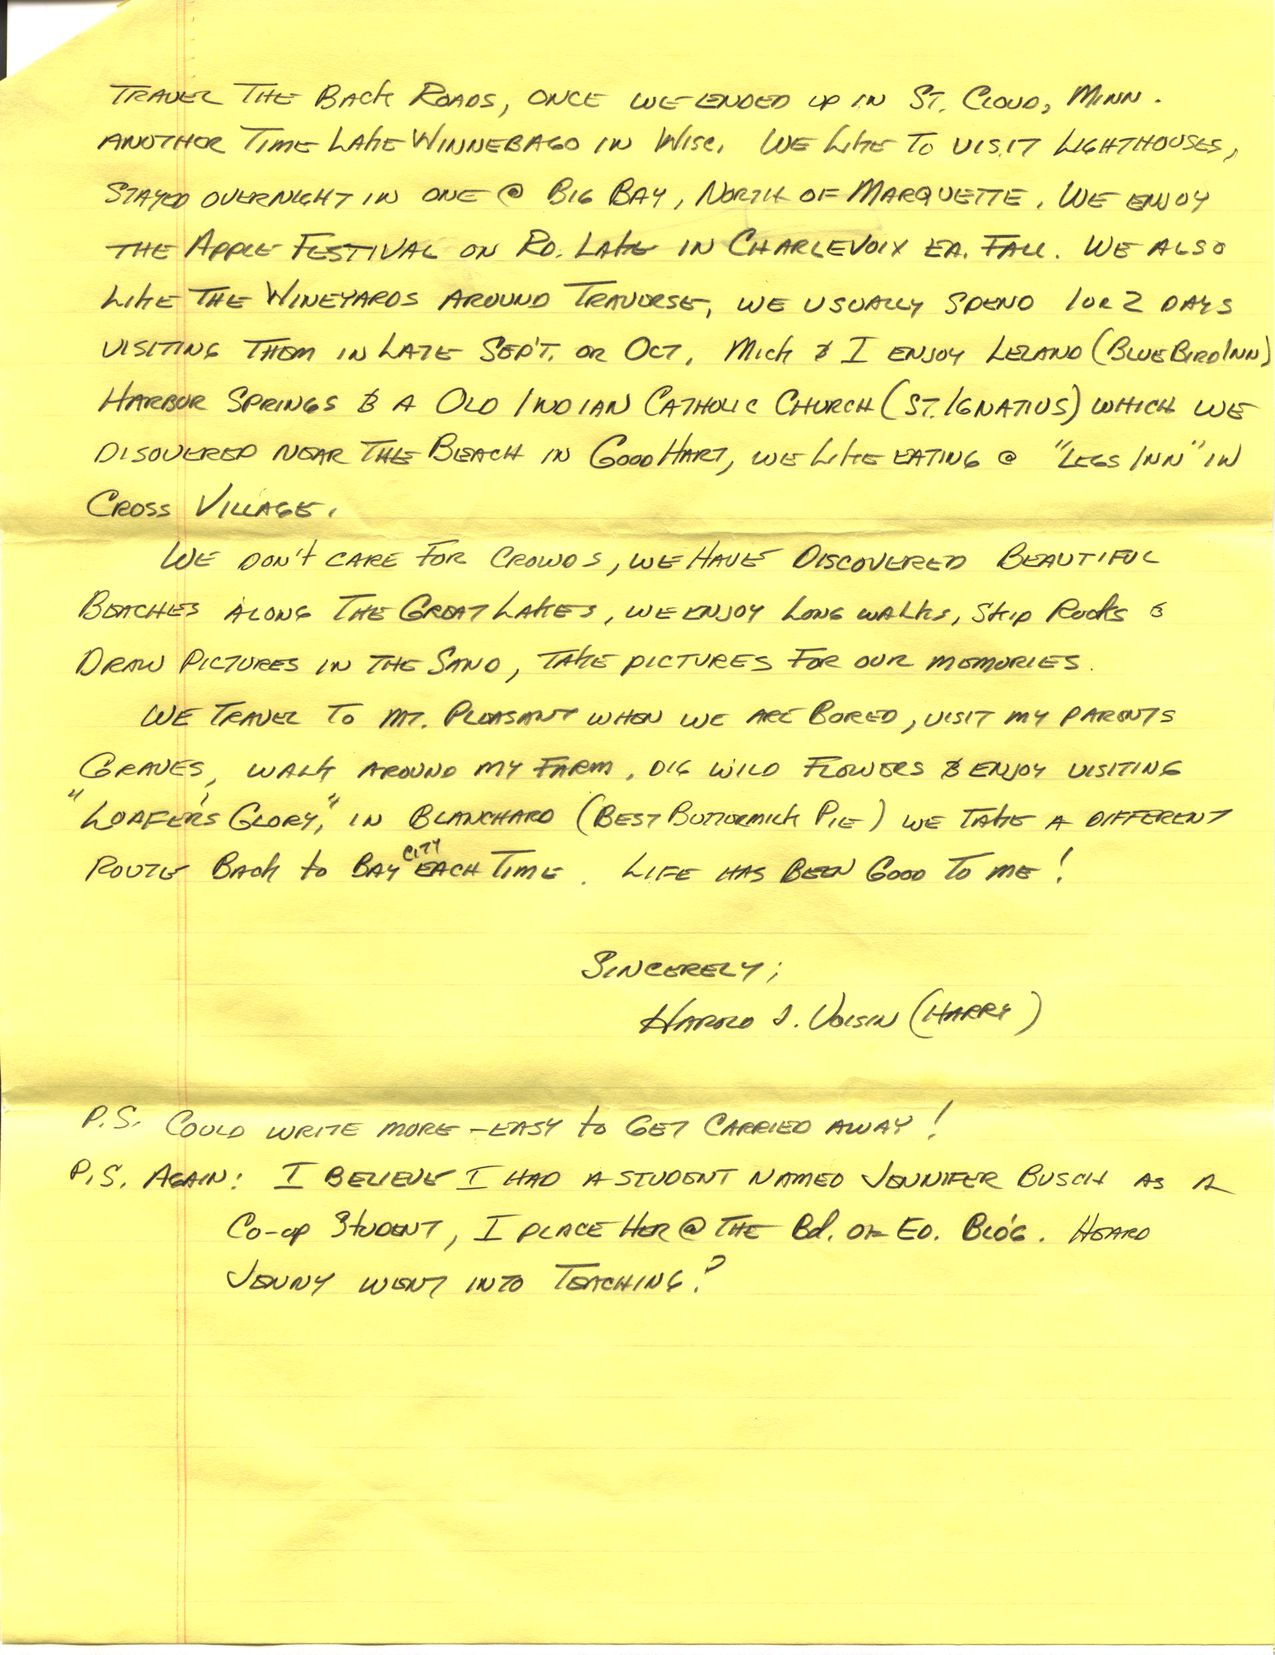 TRAVEL THE BACK ROADS, ONCE WE ENDED UP IN ST. CLOUD, MINN.
ANOTHER TIME LAKE WINNEBAGO IN WISC. WE LIKE TO VISIT LIGHTHOUSES,
STAYED OVERNIGHT IN ONE @ BIG BAY, NORTH OF MARQUETTE. WE ENJOY
THE APPLE FESTIVAL ON RD. LAKE IN CHARLEVOIX EA. FALL. WE ALSO
LIKE THE WINEYARDS AROUND TRAVERSE, WE USUALLY SPEND 1 OR 2 DAYS
VISITING THEM IN LATE SEP'T. OR OCT. MICK & I ENJOY LELAND (BLUE BIRD INN)
HARBOR SPRINGS & A OLD INDIAN CATHOLIC CHURCH (ST. IGNATIUS) WHICH WE
DISOVERED NEAR THE BEACH IN GOOD HART, WE LIKE EATING @ "LEGS INN" IN
CROSS VILLAGE.
WE DON'T CARE FOR CROWDS, WE HAVE DISCOVERED BEAUTIFUL
BEACHES ALONG THE GREAT LAKES, WE ENJOY LONG WALKS, SKIP ROCKS &
DRAW PICTURES IN THE SAND, TAKE PICTURES FOR OUR MEMORIES.
WE TRAVEL TO MT. PLEASANT WHEN WE ARE BORED, VISIT MY PARENTS
GRAVES, WALK AROUND MY FARM, DIG WILD FLOWERS & ENJOY VISITING
"LOAFER'S GLORY," IN BLANCHARD (BEST BUTTERMILK PIE) WE TAKE A DIFFERENT
ROUTE BACK TO BAY CITY EACH TIME. LIFE HAS BEEN GOOD TO ME!
SINCERELY;
HAROLD J. VOISIN (HARRY)
P.S. COULD WRITE MORE - EASY TO GET CARRIED AWAY!
P.S. AGAIN: I BELIEVE I HAD A STUDENT NAMED JENNIFER BUSCH AS A
CO-OP STUDENT, I PLACE HER @ THE BD. OF ED. BLD'G. HEARD
JENNY WENT INTO TEACHING?